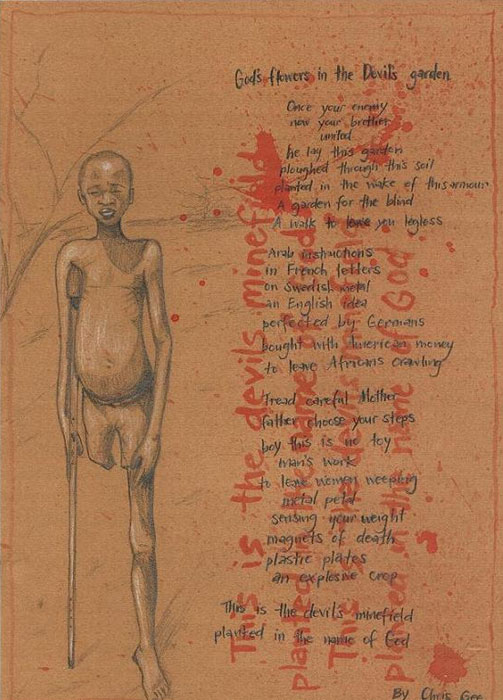 God's flowers in the Devil's garden
Once your enemy
now your brother
united
he lay this garden
ploughed through this soil
planted in the wake of this armour
A garden for the blind
A walk to leave you legless
Arab instructions
in French letters
on Swedish metal
an English idea
perfected by Germans
bought with American money
to leave Africans crawling
Tread careful Mother
father choose your steps
boy this is no toy
man's work
to leave women weeping
metal petal
sensing your weight
magnets of death
plastic plates
an explosive crop
This is the devil's minefield
planted in the name of God
By Chris Gee
This is the devils minefield
planted in the name of God
This is the devils minefield
planted in the name of God